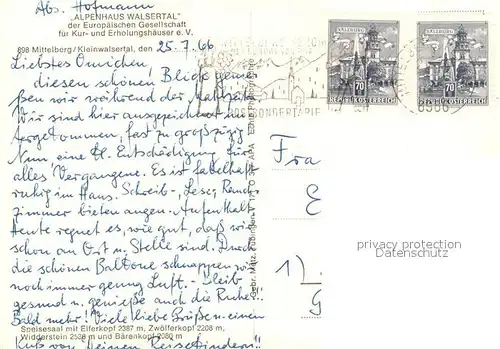 Abs. Hofmann
„ALPENHAUS WALSERTAL"
der Europäischen Gesellschaft
für Kur- und Erholungshäuser e. V.
898 Mittelberg / Kleinwalsertal, den 25.7.66
Liebstes Omichen,
diesen schönen Blick genie-
ßen wir während der Mahlzeit.
Wir sind hier ausgezeichnet un-
tergekommen, fast zu großzügig.
Nun, eine kl. Entschädigung für
alles Vergangene. Es ist fabelhaft
ruhig im Haus. Schreib-, Lese, Rauch-
zimmer bieten angen. Aufenthalt.
Heute regnet es, wie gut, daß wir
schon an Ort u. Stelle sind. Durch
die schönen Balkone schnappen wir
noch immer genug Luft. - Bleib
gesund u. genieße auch die Ruhe.
Bald mehr! Viele liebe Grüße u. einen
Kuß von Deinen
Speisesaal mit Elferkopf 2387 m, Zwölferkopf 2208 m,
Widderstein 2536 m und Bärenkopf 2080 m
SALZBURG
70
REPUBLIK ÖSTERREICH
SALZBURG
70
REPUBLIK ÖSTERREICH
Frau
E
1)
G
privacy protection
Datenschutz